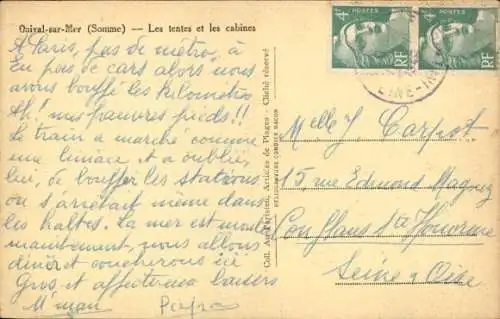 Onival-sur-Mer (Somme) — Les tentes et les cabines
A Paris, pas de métro, à
Eu pas de cars alors nous
avons bouffé les kilomètres
Ah! mes pauvres pieds!!
Le train a marché comme
une limace et a oublié,
lui, de bouffer les stations
on s'arrêtait même dans
les haltes. La mer est
maintenant, nous allons
dîner et coucherons ici
Gros et affectueux baisers
M'man Papa
Coll. Art Parisien, Articles de Plages - Cliché réservé
HÉLIOGRAVURE COMBIER MACON
4F POSTES RF
4F POSTES RF
Melle J Carpot
15 rue Edmond
Conflans Ste Honorine
Seine & Oise